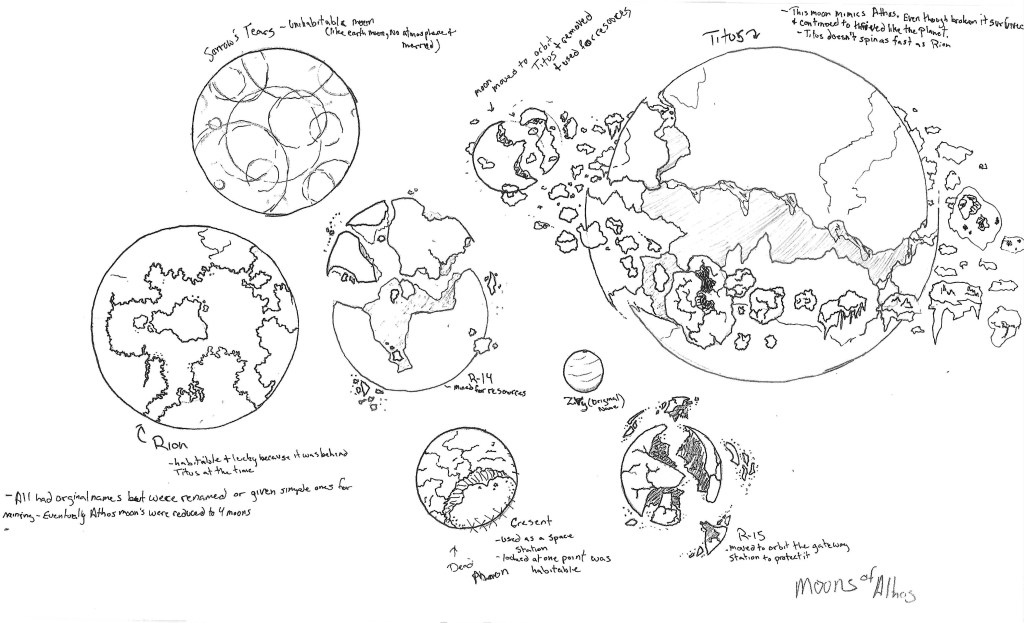 Sorrow's Tears - Uninhabitable moon
(like earth moon, No atmosphere +
moon moved to orbit
Titus + removed
+ used for resources
Titus
- This moon mimics Athos. Even though broken it survived
+ continued to thrived like the planet.
- Titus doesn't spin as fast as Rion
R-14
- mined for resources
Rion
- habitable + lucky because it was behind
Titus at the time
- All had orginal names but were renamed or given simple ones for
mining - Eventually Athos moon's were reduced to 4 moons
(original
name)
Cresent
- used as a space
station
- looked at one point was
habitable
Dead
R-15
- moved to orbit the gateway
station to protect it
Moons of Athos